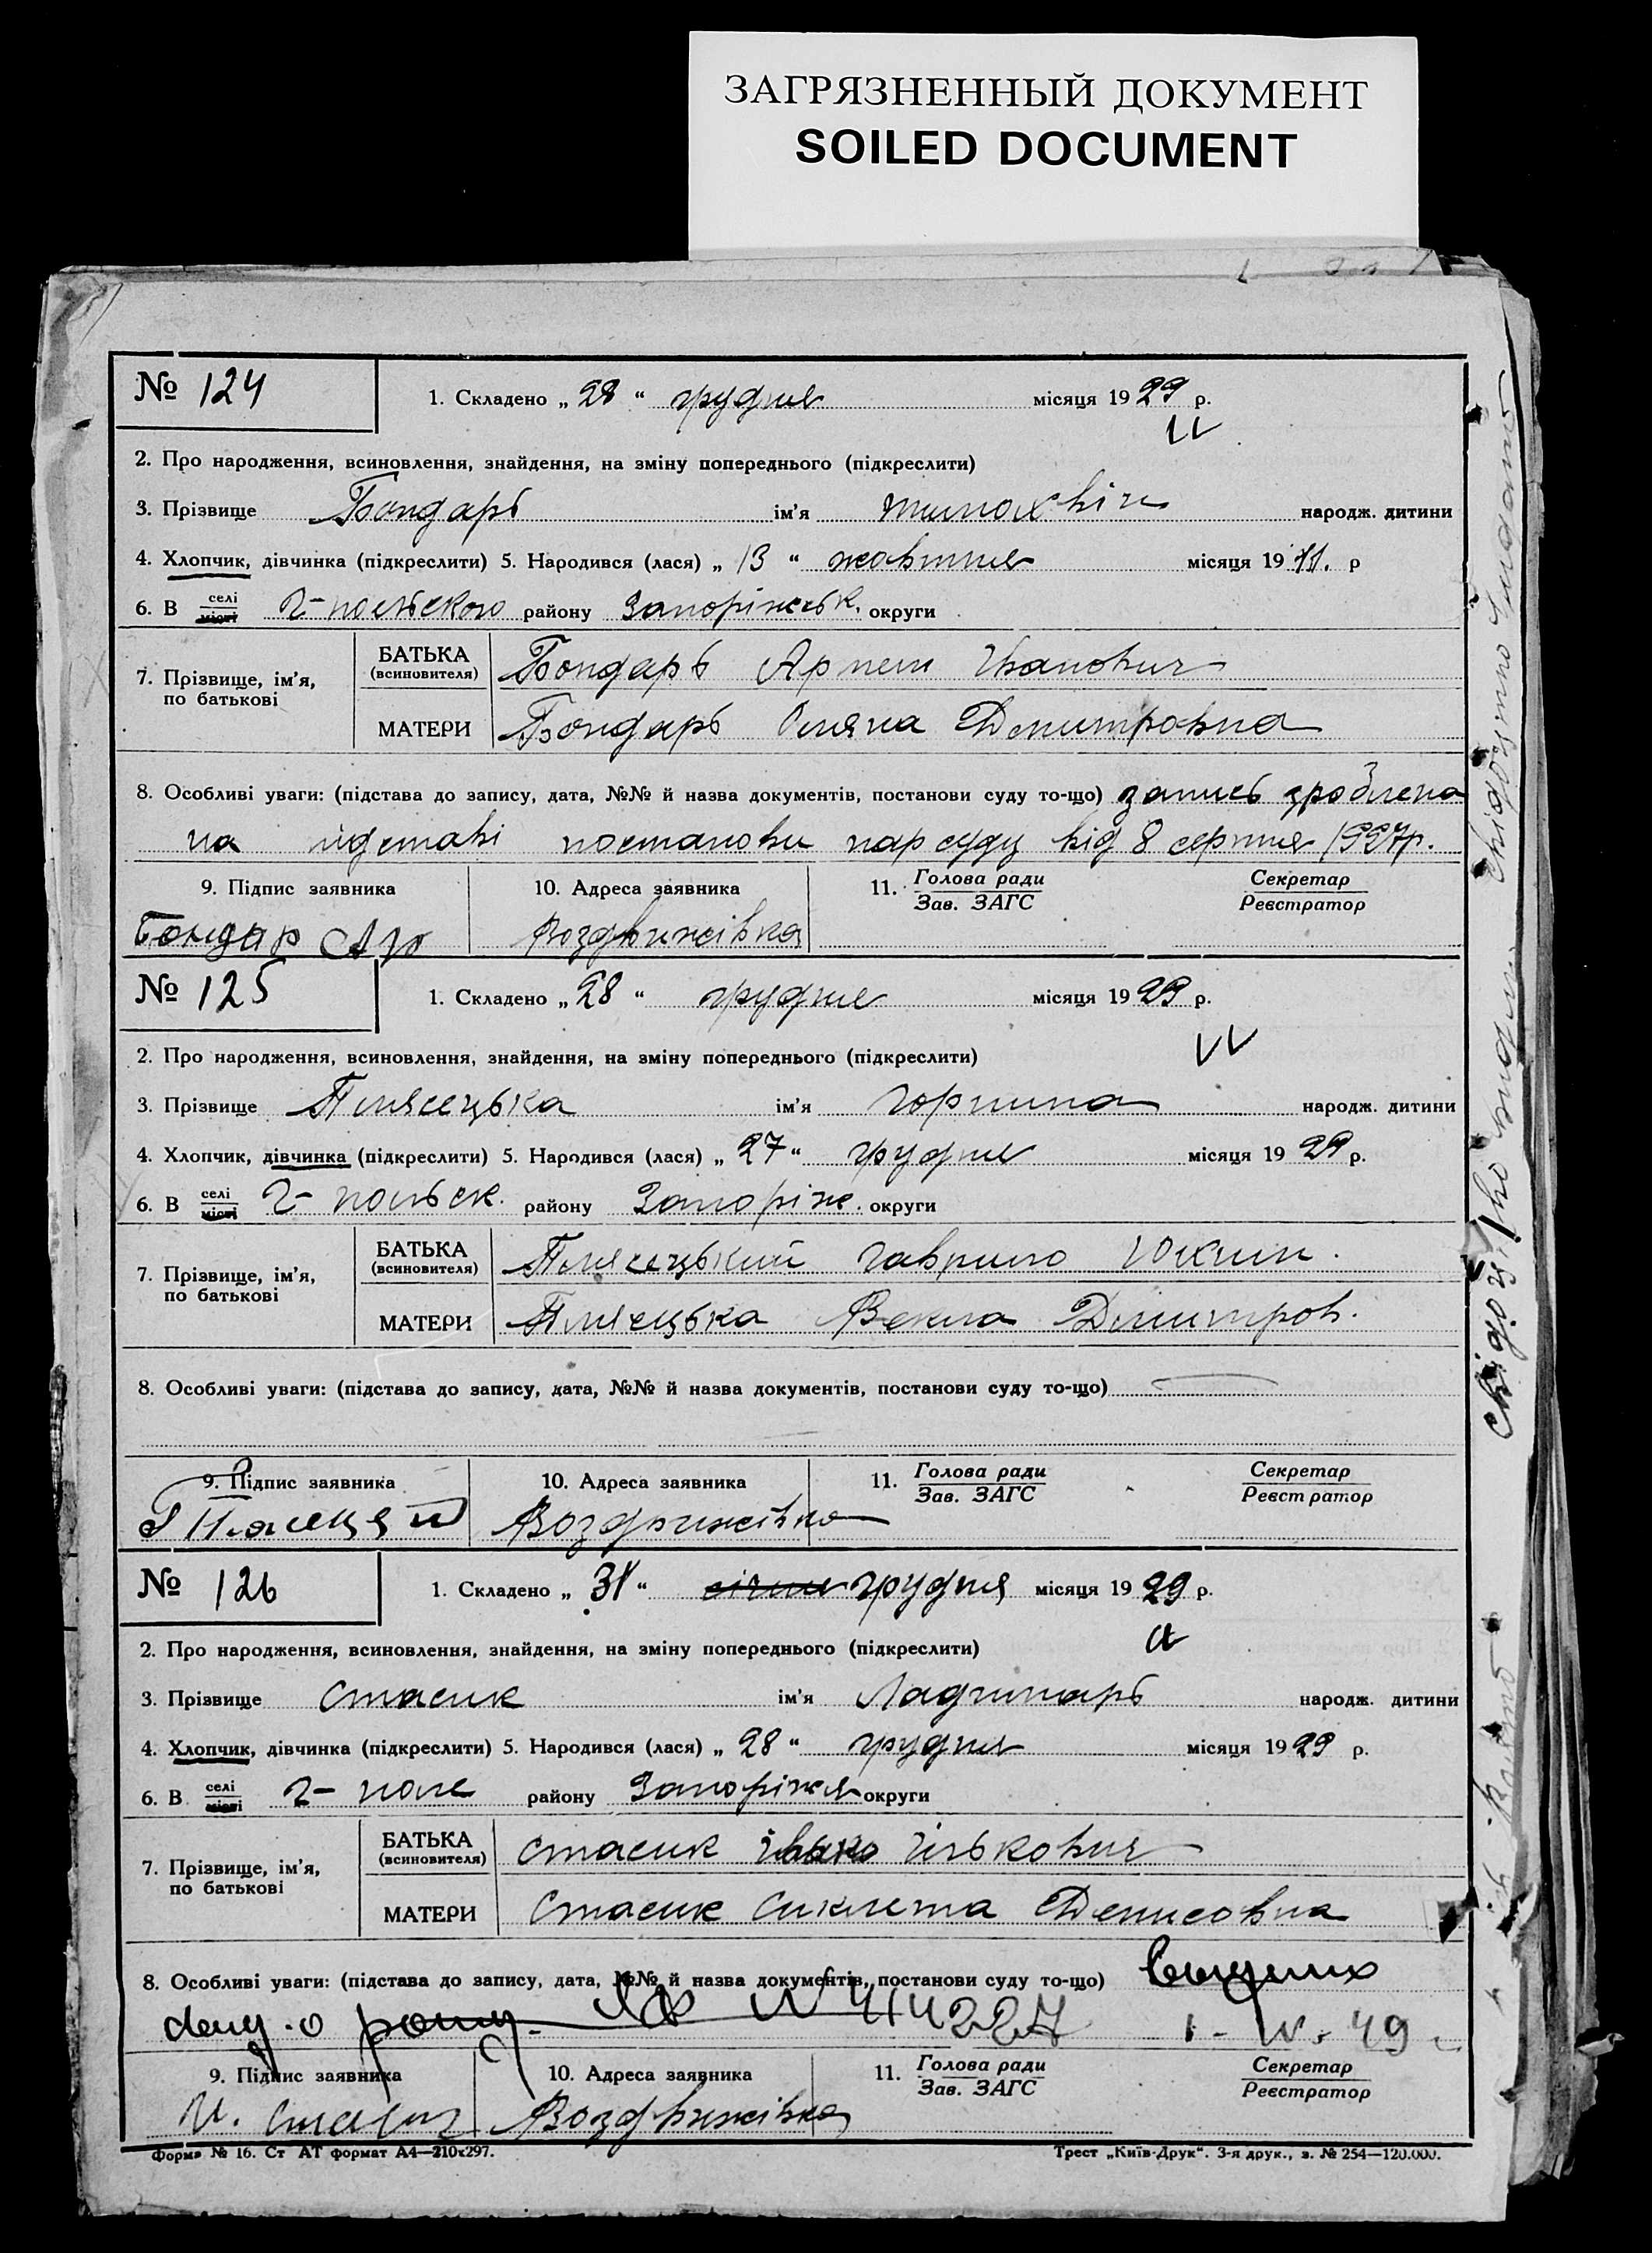 ЗАГРЯЗНЕННЫЙ ДОКУМЕНТ
SOILED DOCUMENT
№ 124
1. Складено „ 28 “ грудня місяця 19 29 р.
2. Про народження, всиновлення, знайдення, на зміну попереднього (підкреслити)
3. Прізвище Бондарь ім'я народж. дитини
4. Хлопчик, дівчинка (підкреслити) 5. Народився (лася) „ 13 “ жовтня місяця 19 11. р
6. В селі місті Г-польского району Запоріжськ. округи
7. Прізвище, ім'я, по батькові
БАТЬКА (всиновителя) Бондарь Артем Іванович
МАТЕРИ Бондарь Оляна Дмитровна
8. Особливі уваги: (підстава до запису, дата, №№ й назва документів, постанови суду то-що) запись зроблена
на підставі постанови нарсуду від 8 серпня
9. Підпис заявника 10. Адреса заявника 11. Голова ради Зав. ЗАГС Секретар Реєстратор
Бондар Воздвижівка
№ 125
1. Складено „ 28 “ грудня місяця 19 29 р.
2. Про народження, всиновлення, знайдення, на зміну попереднього (підкреслити)
3. Прізвище Плясецька ім'я Горпина народж. дитини
4. Хлопчик, дівчинка (підкреслити) 5. Народився (лася) „ 27 “ грудня місяця 19 29 р.
6. В селі місті Г- польськ. району Запоріж. округи
7. Прізвище, ім'я, по батькові
БАТЬКА (всиновителя) Плясецький Гаврило Юхим.
МАТЕРИ Плясецька Векла Дмитров.
8. Особливі уваги: (підстава до запису, дата, №№ й назва документів, постанови суду то-що)
9. Підпис заявника 10. Адреса заявника 11. Голова ради Зав. ЗАГС Секретар Реєстратор
Воздвижівка
№ 126
1. Складено „ 31 “ січня грудня місяця 19 29 р.
2. Про народження, всиновлення, знайдення, на зміну попереднього (підкреслити)
3. Прізвище Стасик ім'я народж. дитини
4. Хлопчик, дівчинка (підкреслити) 5. Народився (лася) „ 28 “ грудня місяця 19 29 р.
6. В селі місті Г- поле району Запоріжжя округи
7. Прізвище, ім'я, по батькові
БАТЬКА (всиновителя) Стасик Івано Ількович
МАТЕРИ Стасик Сиклета Денисовна
8. Особливі уваги: (підстава до запису, дата, №№ й назва документів, постанови суду то-що)
N 414227 1-IV-49
9. Підпис заявника 10. Адреса заявника 11. Голова ради Зав. ЗАГС Секретар Реєстратор
И. Стасик Воздвижівка
Форма № 16. Ст АТ формат А4—210х297. Трест „Київ-Друк“. 3-я друк., з. № 254—120.000.